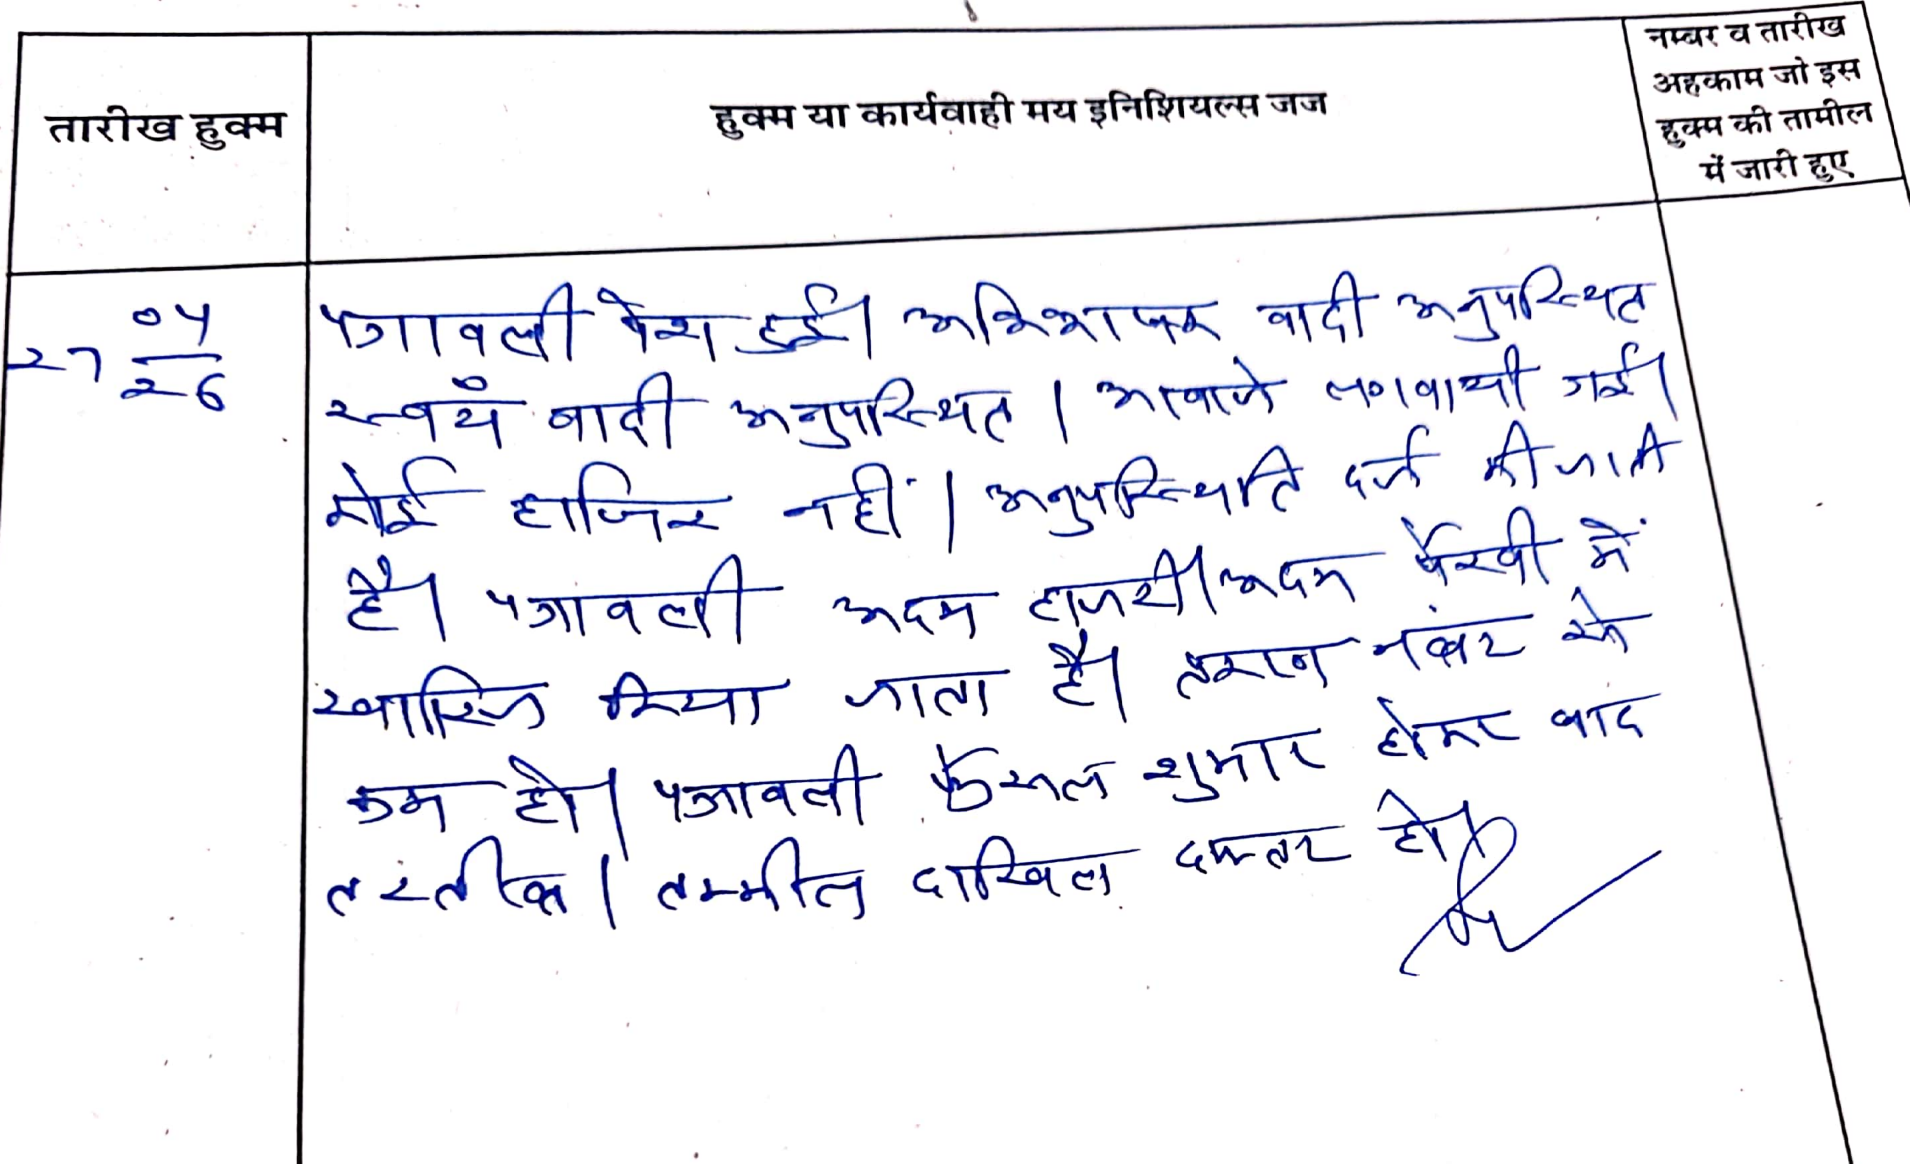 तारीख हुक्म
हुक्म या कार्यवाही मय इनिशियल्स जज
नम्बर व तारीख
अहकाम जो इस
हुक्म की तामील
में जारी हुए
27 04/26
पत्रावली पेश हुई। अभिभाषक वादी अनुपस्थित
स्वयं वादी अनुपस्थित। आवाजे लगवायी गई।
कोई हाजिर नहीं। अनुपस्थिति दर्ज की जाती
है। पत्रावली अदम हाजरी/अदम पैरवी में
खारिज किया जाता है। नंबर से
कम हो। पत्रावली फैसल शुमार होकर बाद
दाखिल दफ्तर हो।